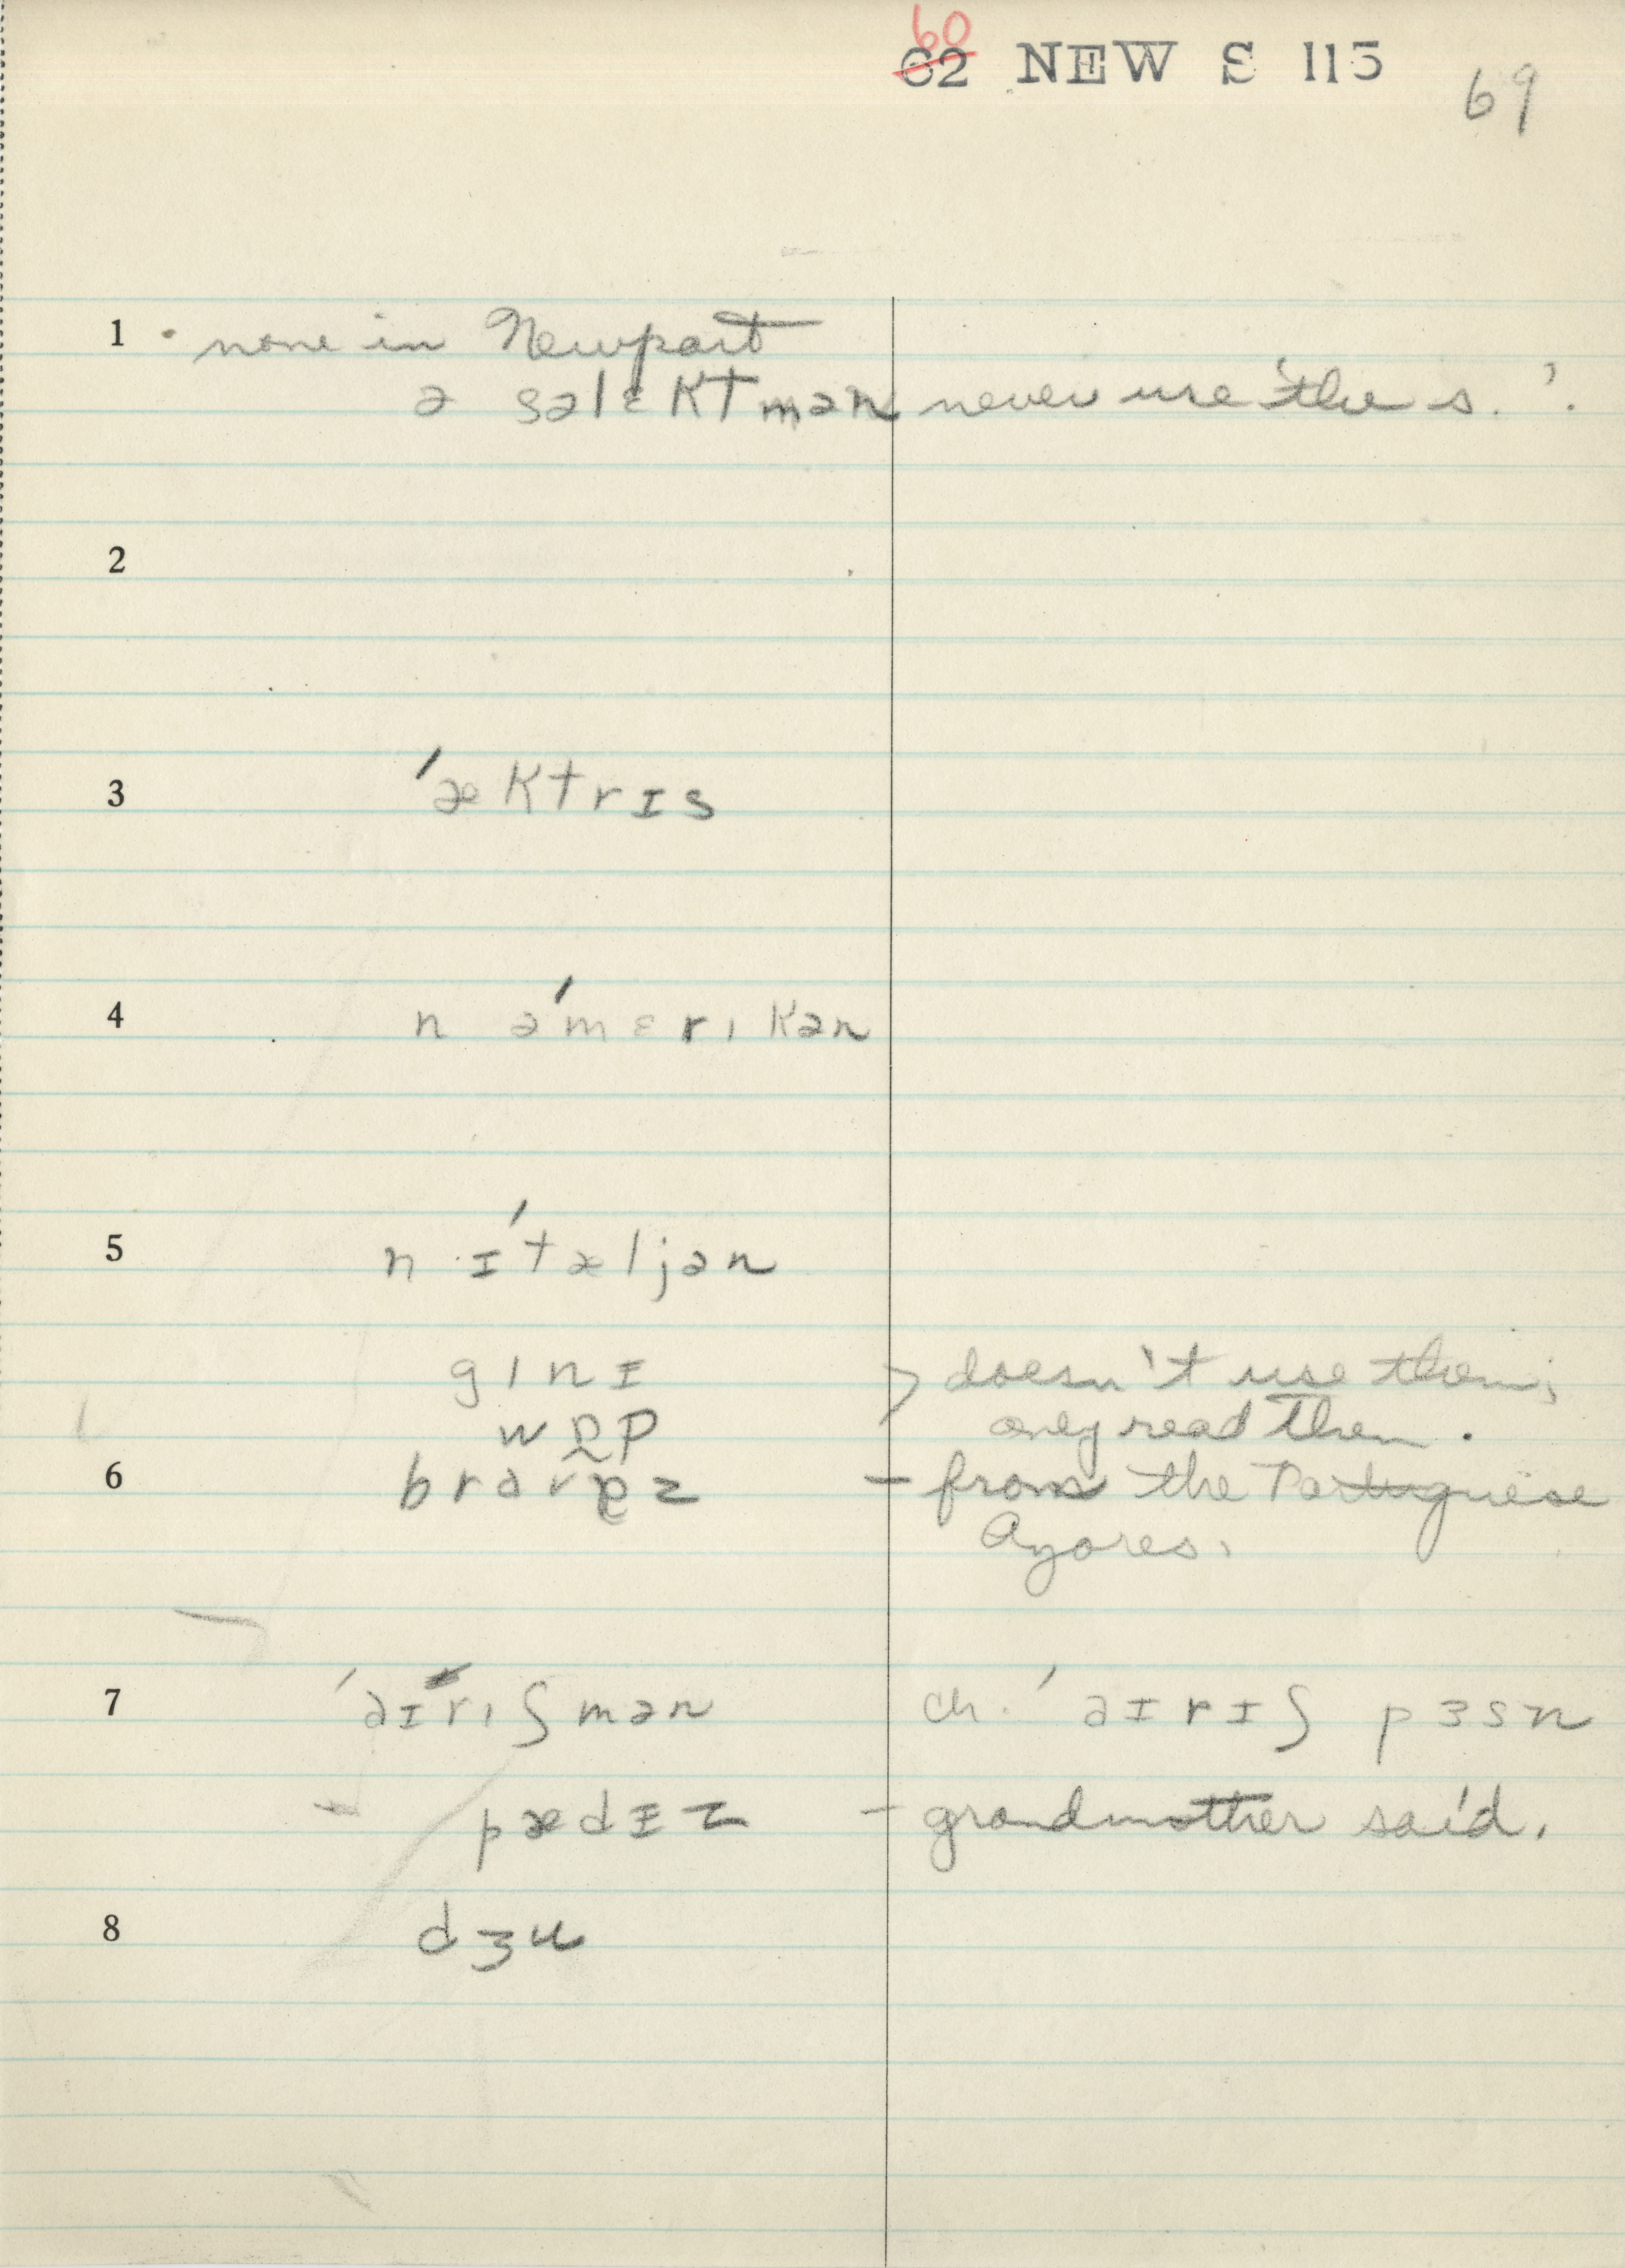 60
62 NEW S 115 69
1 none in Newport
ə səlɛktmən never use 'the s.'.
2
3 ˈæktrɪs
4 n əˈmɛrɪkən
5 n ɪˈtæljən
gɪnɪ > doesn't use them;
wɒp only read them.
6 — from the Portuguese
Azores.
7 ˈaɪrɪʃmən ch. ˈaɪrɪʃ pɜsn
pædɪz — grandmother said.
8 dʒu